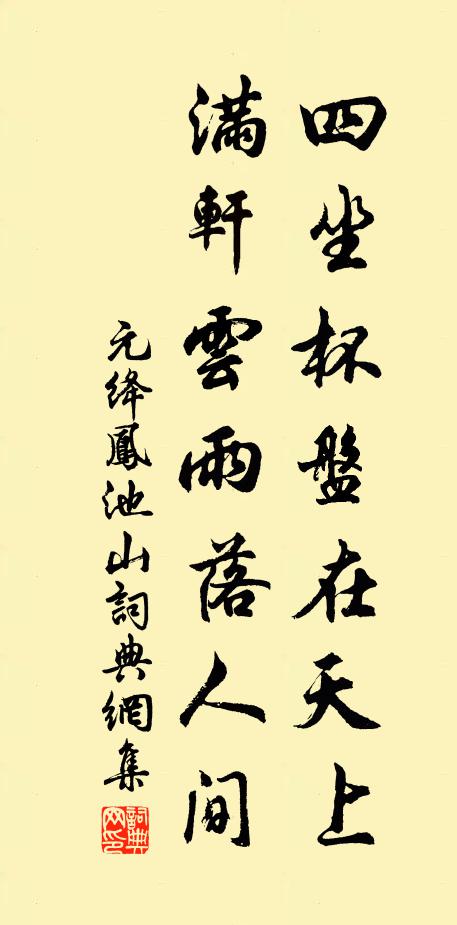 四坐杯盤在天上
滿軒雲雨落人间
元绛鳳池山詞典網集
詞典网印